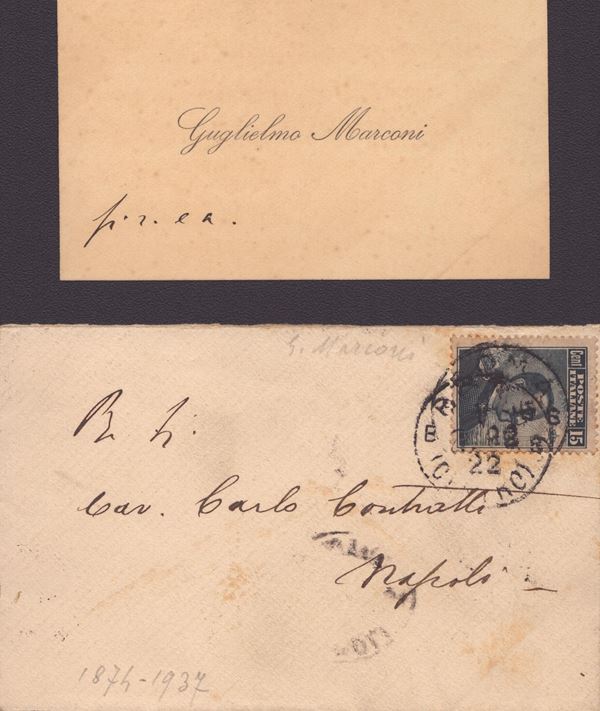 Guglielmo Marconi
p. r. e a.
G. Marconi
Cent. 15
POSTE
ITALIANE
22
Cav. Carlo Contratti
Napoli
1874-1937